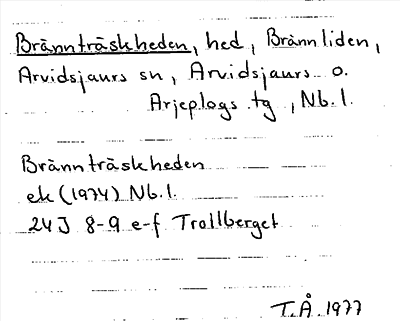 Brännträskheden, hed, Brännliden,
Arvidsjaurs sn, Arvidsjaurs o.
Arjeplogs tg, Nb.l.
Brännträskheden
ek (1974) Nb.l.
24J 8-9 e-f Trollberget
T.Å. 1977